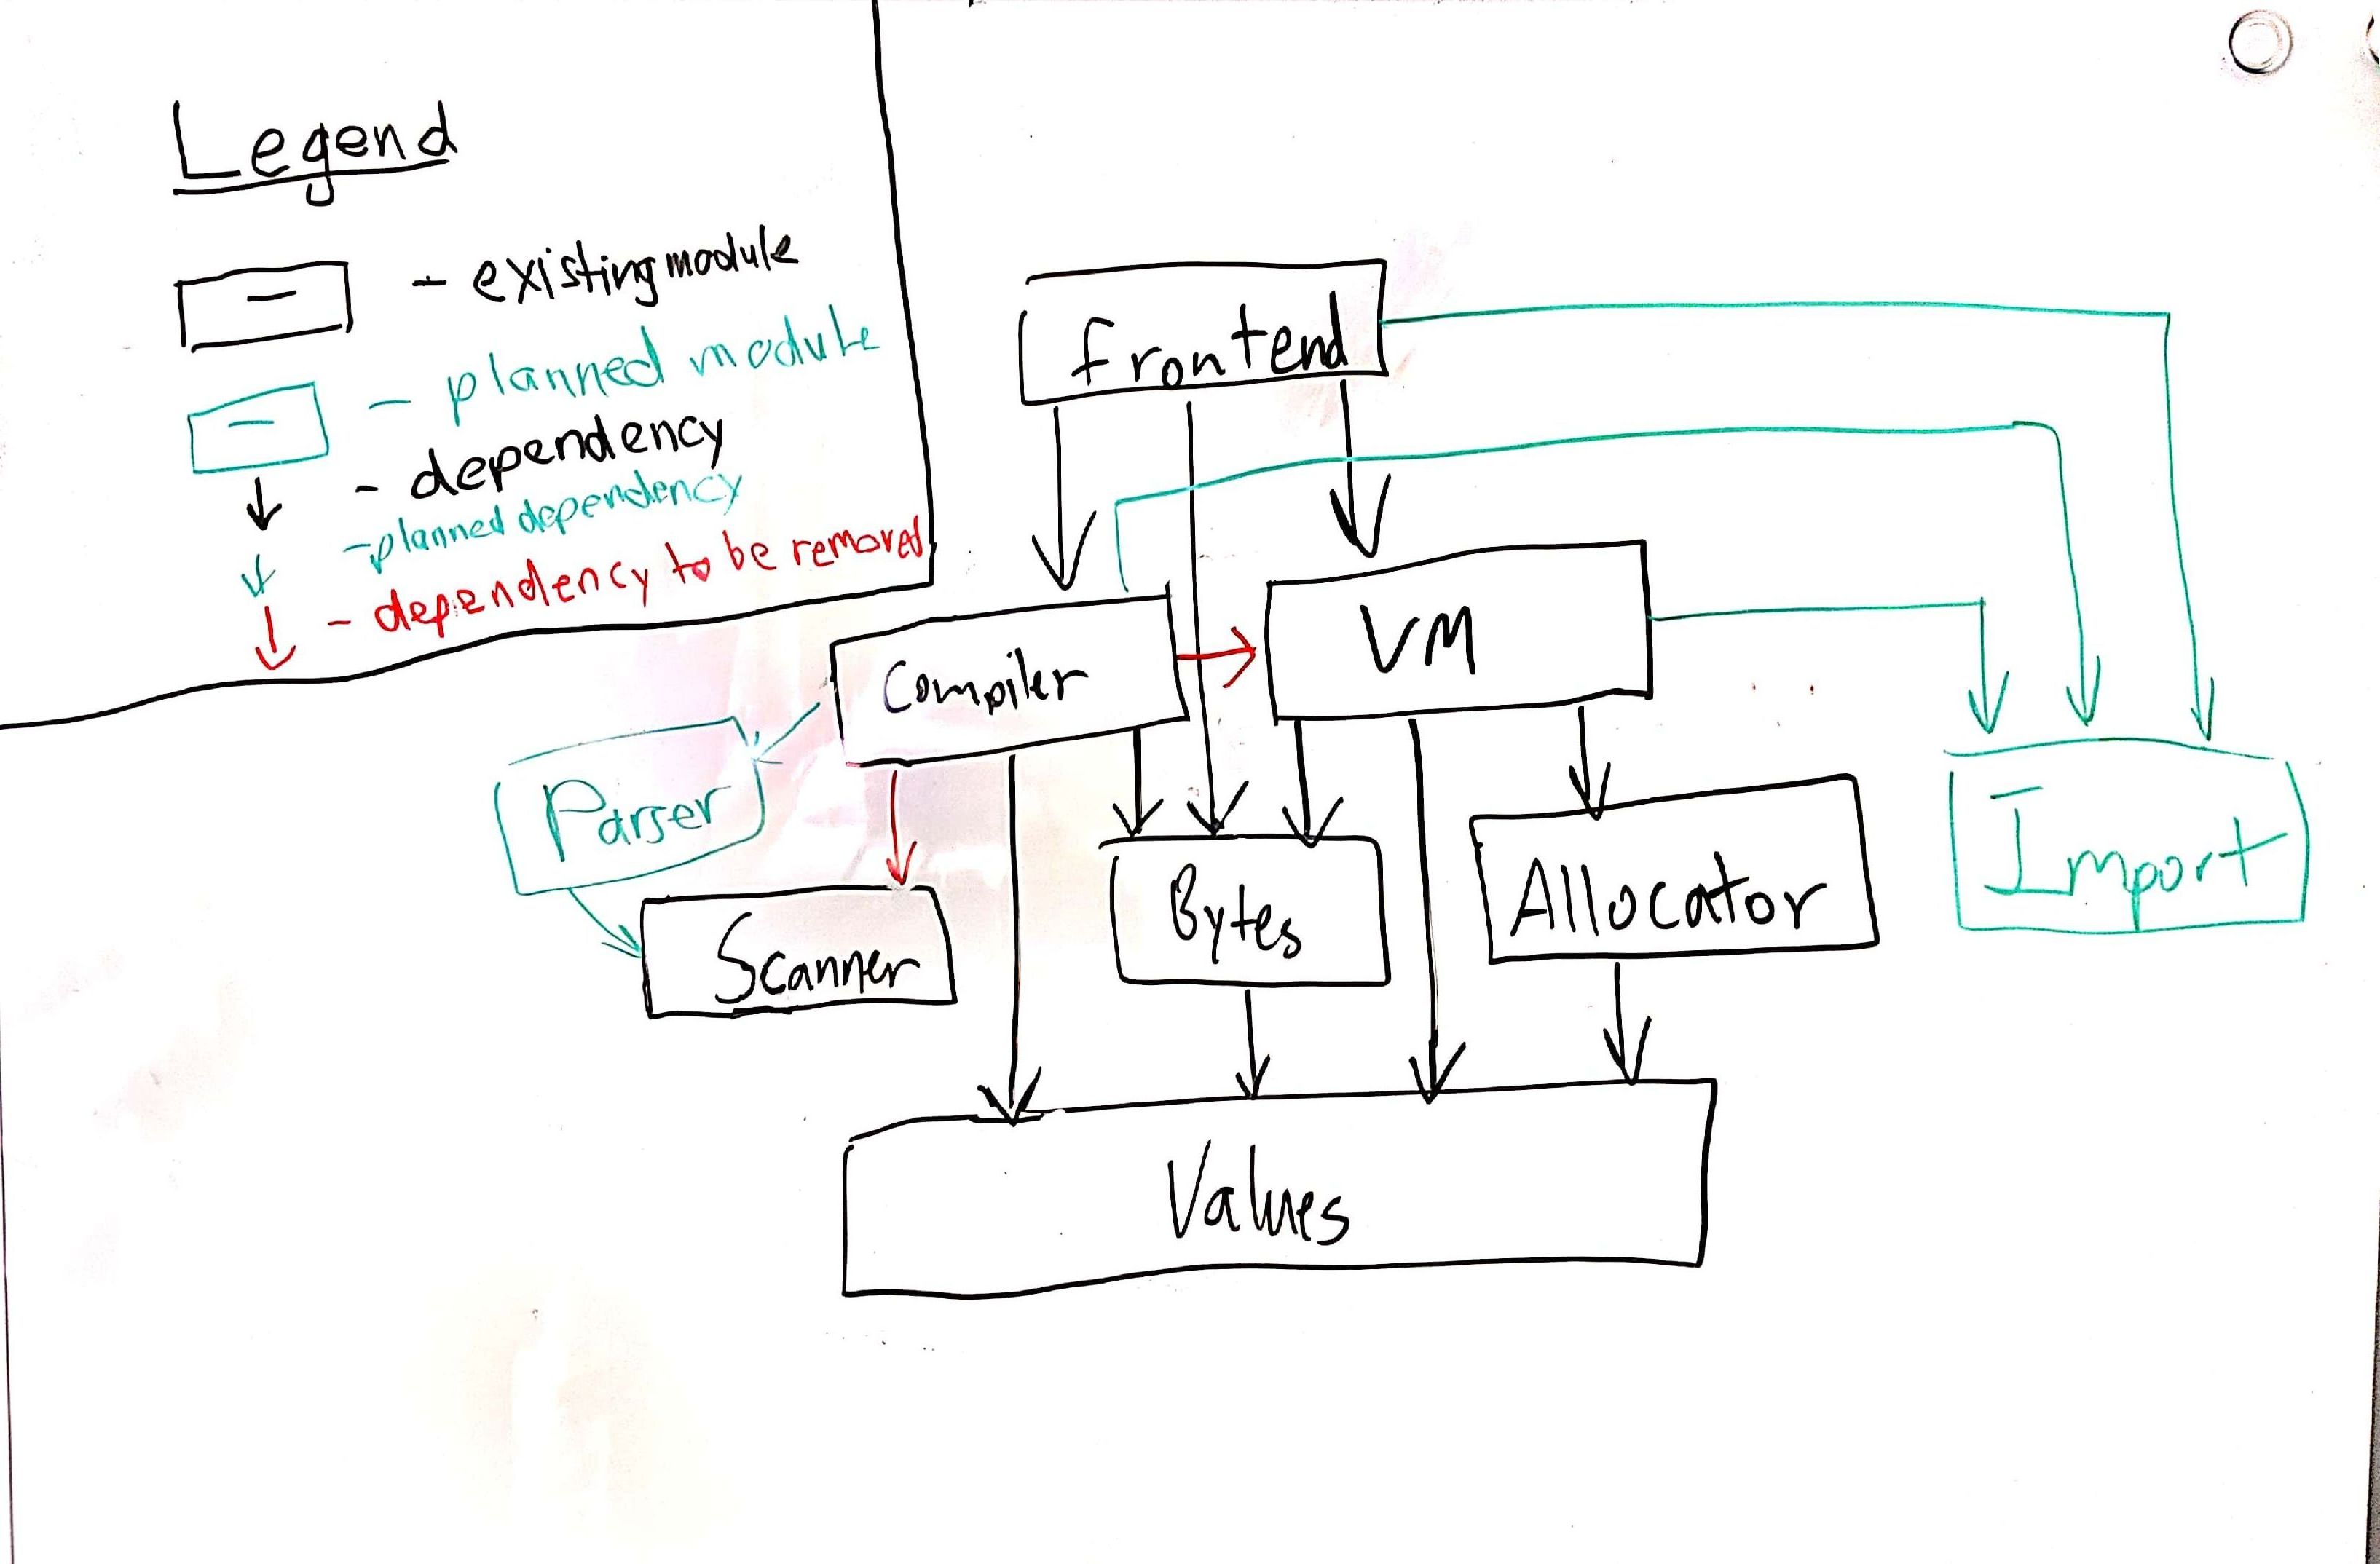 Legend
- existing module
- planned module
- dependency
- planned dependency
- dependency to be removed
frontend
Compiler
VM
Parser
Scanner
Bytes
Allocator
Import
Values